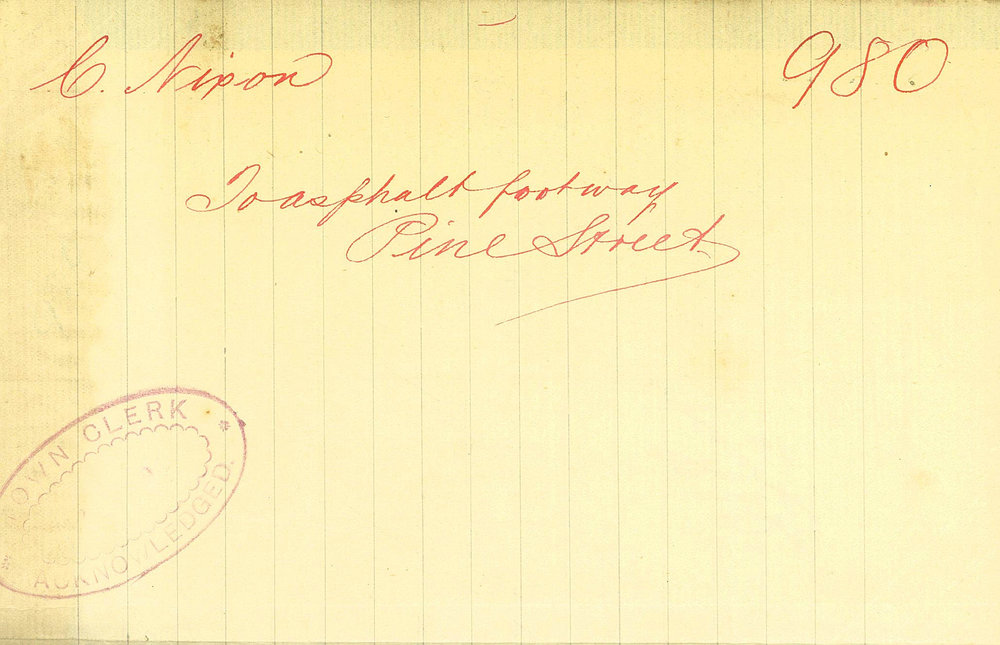 C. Nixon 980
To asphalt footway
Pine Street
TOWN CLERK
ACKNOWLEDGED.